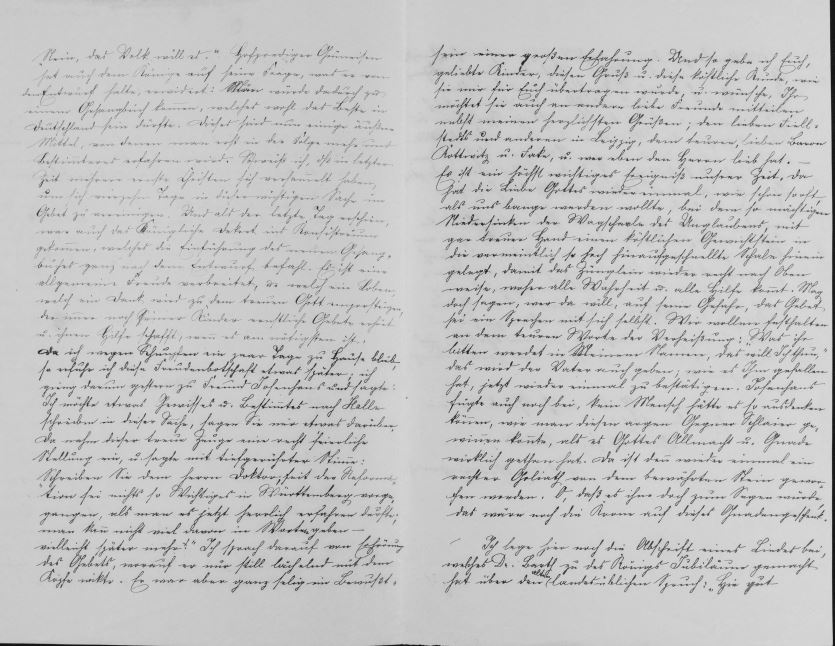 „Nein, das Volk will es." Hofprediger Grüneisen
hat auch dem Könige auf seine Frage, was er von
dem Entwurf halte, erwidert: Man würde dadurch zu
einem Gesangbuch kommen, welches wohl das Beste in
Deutschland sein dürfte. Dieses sind nun einige äußere
Mittel, von denen man erst in der Folge mehr und
Bestimmteres erfahren wird. Gewiß ist, daß in letzter
Zeit mehrere ernste Christen sich versammelt haben,
um sich vierzehn Tage in dieser wichtigen Sache im
Gebet zu vereinigen. Und als der letzte Tag erschien,
war auch das Königliche Dekret ins Konsistorium
gekommen, welches die Einführung des neuen Gesang-
buches ganz nach dem Entwurf befahl. Es ist eine
allgemeine Freude verbreitet, u. welch ein Loben,
welch ein Dank wird zu dem treuen Gott emporsteigen,
der immer noch Seiner Kinder ernstliche Gebete erhört
u. ihnen Hilfe schafft, wenn es am nötigsten ist.
Da ich wegen Schnupfen ein paar Tage zu Hause blieb,
so erfuhr ich diese Freudenbotschaft etwas später; ich
ging darum gestern zu Freund Josenhans und sagte:
Ich möchte etwas Gewisses u. Bestimmtes nach Halle
schreiben in dieser Sache, sagen Sie mir etwas darüber.
Da nahm dieser treue Zeuge eine recht feierliche
Stellung ein, u. sagte mit tiefgerührter Stimme:
Schreiben Sie dem Herrn Doktor, seit der Reforma-
tion sei nichts so Wichtiges in Württemberg vorge-
gangen, als man es jetzt herrlich erfahren dürfte;
man kann nicht viel davon in Worten geben —
vielleicht später mehr." Ich sprach darauf von Erhörung
des Gebets, worauf er nur still lächelnd mit dem
Kopfe nickte. Er war aber ganz selig im Bewußt-
sein einer großen Erfahrung. Und so gebe ich Euch,
geliebte Kinder, diesen Gruß u. diese köstliche Kunde, wie
sie mir für Euch übertragen wurde, u. wünsche, Ihr
möchtet sie auch an andere liebe Freunde mitteilen
nebst meinen herzlichsten Grüßen; den lieben
und anderen in Leipzig, dem teuren, lieben Baron
Kottwitz u. u. wer eben den Herrn lieb hat. —
Es ist ein höchst wichtiges Ereignis unsrer Zeit. Da
hat die Liebe Gottes wieder einmal, wie schon so oft
als uns bange werden wollte, bei dem so mächtigen
Niedersinken der Wagschale des Unglaubens, mit
gar treuer Hand einen köstlichen Gewichtstein in
die vermeintlich so hoch hinaufgeschnellte Schale hinein
gelegt, damit das Zünglein wieder recht nach Oben
weise, woher alle Wahrheit u. alle Hilfe kommt. Mag
doch sagen, wer da will, auf seine Gefahr, das Gebet
sei ein Sprechen mit sich selbst. Wir wollen festhalten
an dem teuren Worte der Verheißung: „Was ihr
bitten werdet in Meinem Namen, das will Ich thun,"
das wird der Vater auch geben; wie es Ihm gefallen
hat, jetzt wieder einmal zu bestätigen. Josenhans
fügte auch noch bei, kein Mensch hätte es so ausdenken
können, wie man diesen argen Gegner Schlaier ge-
winnen konnte, als es Gottes Allmacht u. Gnade
wirklich gethan hat. Da ist denn wieder einmal ein
rechter Goliath von dem bewährten Stein getrof-
fen worden. O, daß es ihm doch zum Segen würde,
das wäre noch die Krone auf dieses Gnadengeschenk.
Ich lege hier noch die Abschrift eines Liedes bei,
welches Dr. Barth zu des Königs Jubiläum gemacht
hat über den alten landesüblichen Spruch: „Hie gut